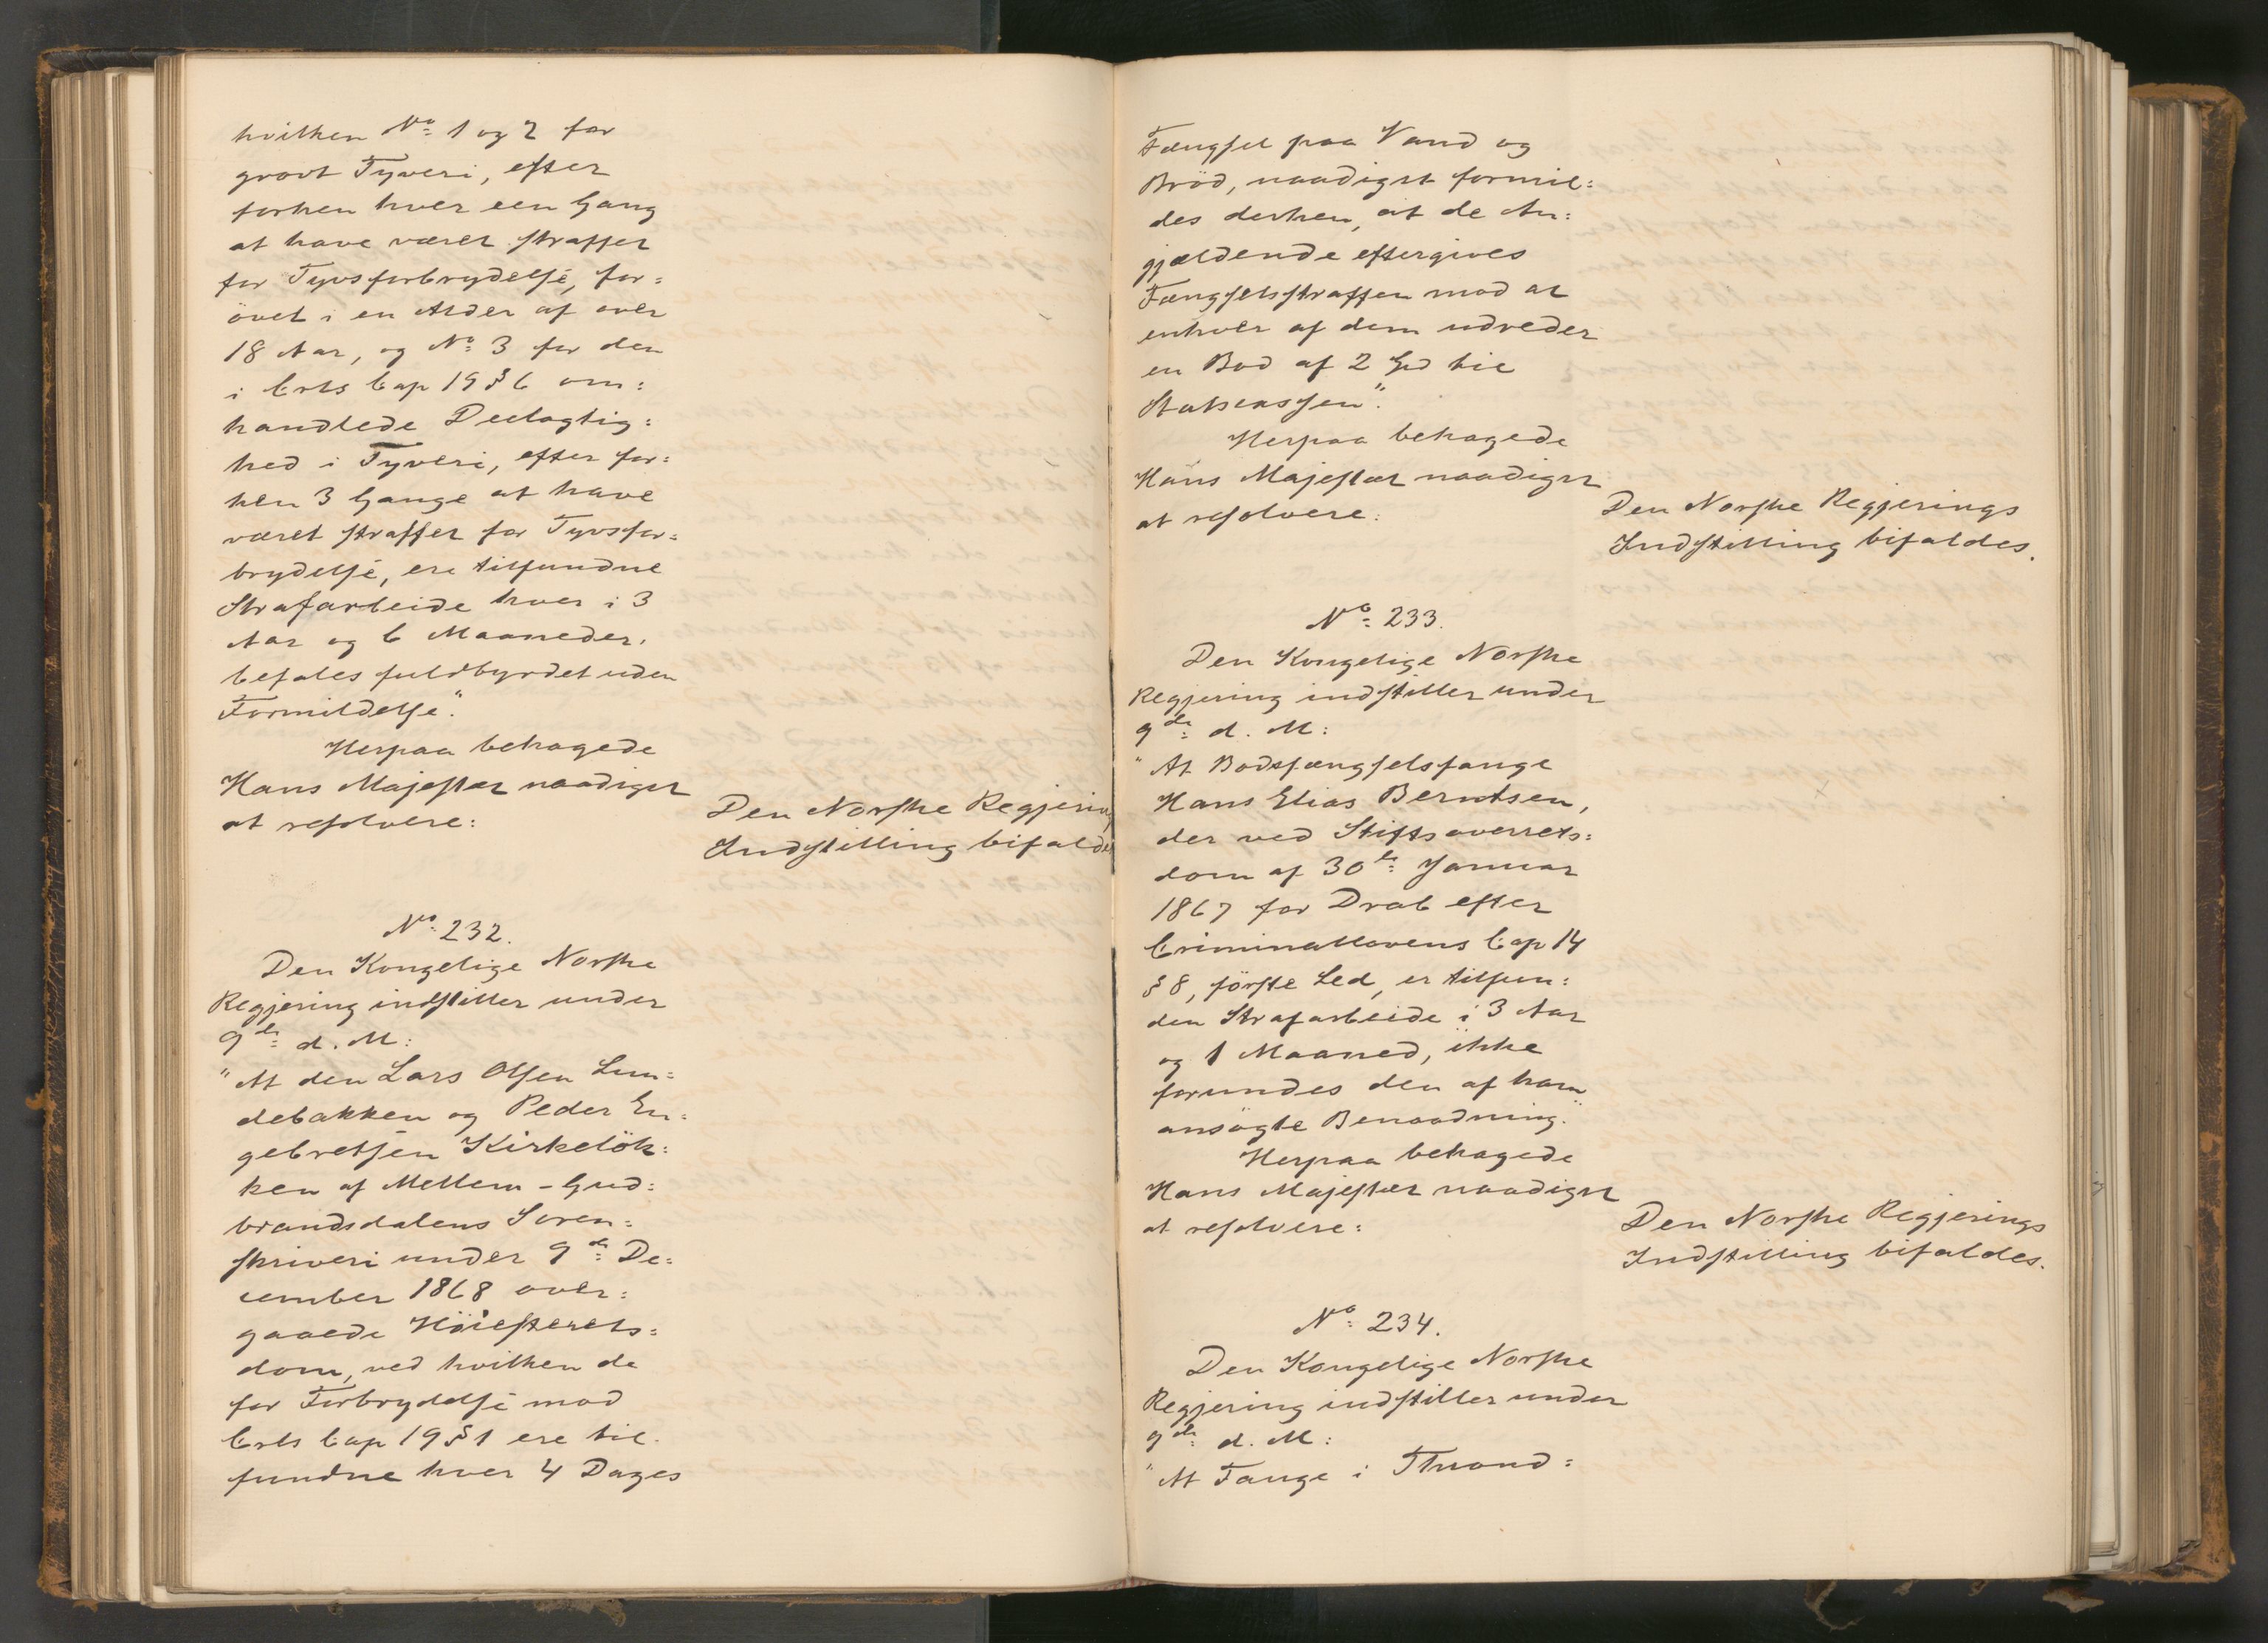 hvilken No 1 og 2 for
grovt Tyveri, efter
forhen hver een Gang
at have været straffet
for Tyvsforbrydelse, for=
övet i en Alder af over
18 Aar, og No 3 for den
i Crls Cap 19 § 6 om=
handlede Deelagtig=
hed i Tyveri, efter for=
hen 3 Gange at have
været straffet for Tyvsfor=
brydelse, ere tilfundne
Strafarbeide hver i 3
Aar og 6 Maaneder,
befales fuldbyrdet uden
Formildelse."
Herpaa behagede
Hans Majestæt naadigst
at resolvere:
Den Norske Regjering
Indstilling bifaldes
No 232.
Den Kongelige Norske
Regjering indstiller under
9de d. M:
"At den Lars Olsen Lun=
debakken og Peder En=
gebretsen Kirkelök=
ken af Mellem-Gud=
brandsdalens Soren=
skriveri under 9de De=
cember 1868 over=
gaaede Höiesterets=
dom, ved hvilken de
for Forbrydelse mod
Crls Cap 19 § 1 ere til=
fundne hver 4 Dages
Fængsel paa Vand og
Bröd, naadigst formil=
des derhen, at de An=
gjældende eftergives
Fængselsstraffen mod at
enhver af dem udreder
en Bod af 2 Spd til
Statscassen".
Herpaa behagede
Hans Majestæt naadigst
at resolvere:
Den Norske Regjerings
Indstilling bifaldes.
No 233.
Den Kongelige Norske
Regjering indstiller under
9de d. M:
"At Bodsfængselsfange
Hans Elias Berntsen,
der ved Stiftsoverrets=
dom af 30te Januar
1867 for Drab efter
Criminallovens Cap 14
§ 8, förste Led, er tilfun=
den Strafarbeide i 3 Aar
og 1 Maaned, ikke
forundes den af ham
ansögte Benaadning."
Herpaa behagede
Hans Majestæt naadigst
at resolvere:
Den Norske Regjerings
Indstilling bifaldes.
No 234.
Den Kongelige Norske
Regjering indstiller under
9de d. M:
"At Fange i Thrond=